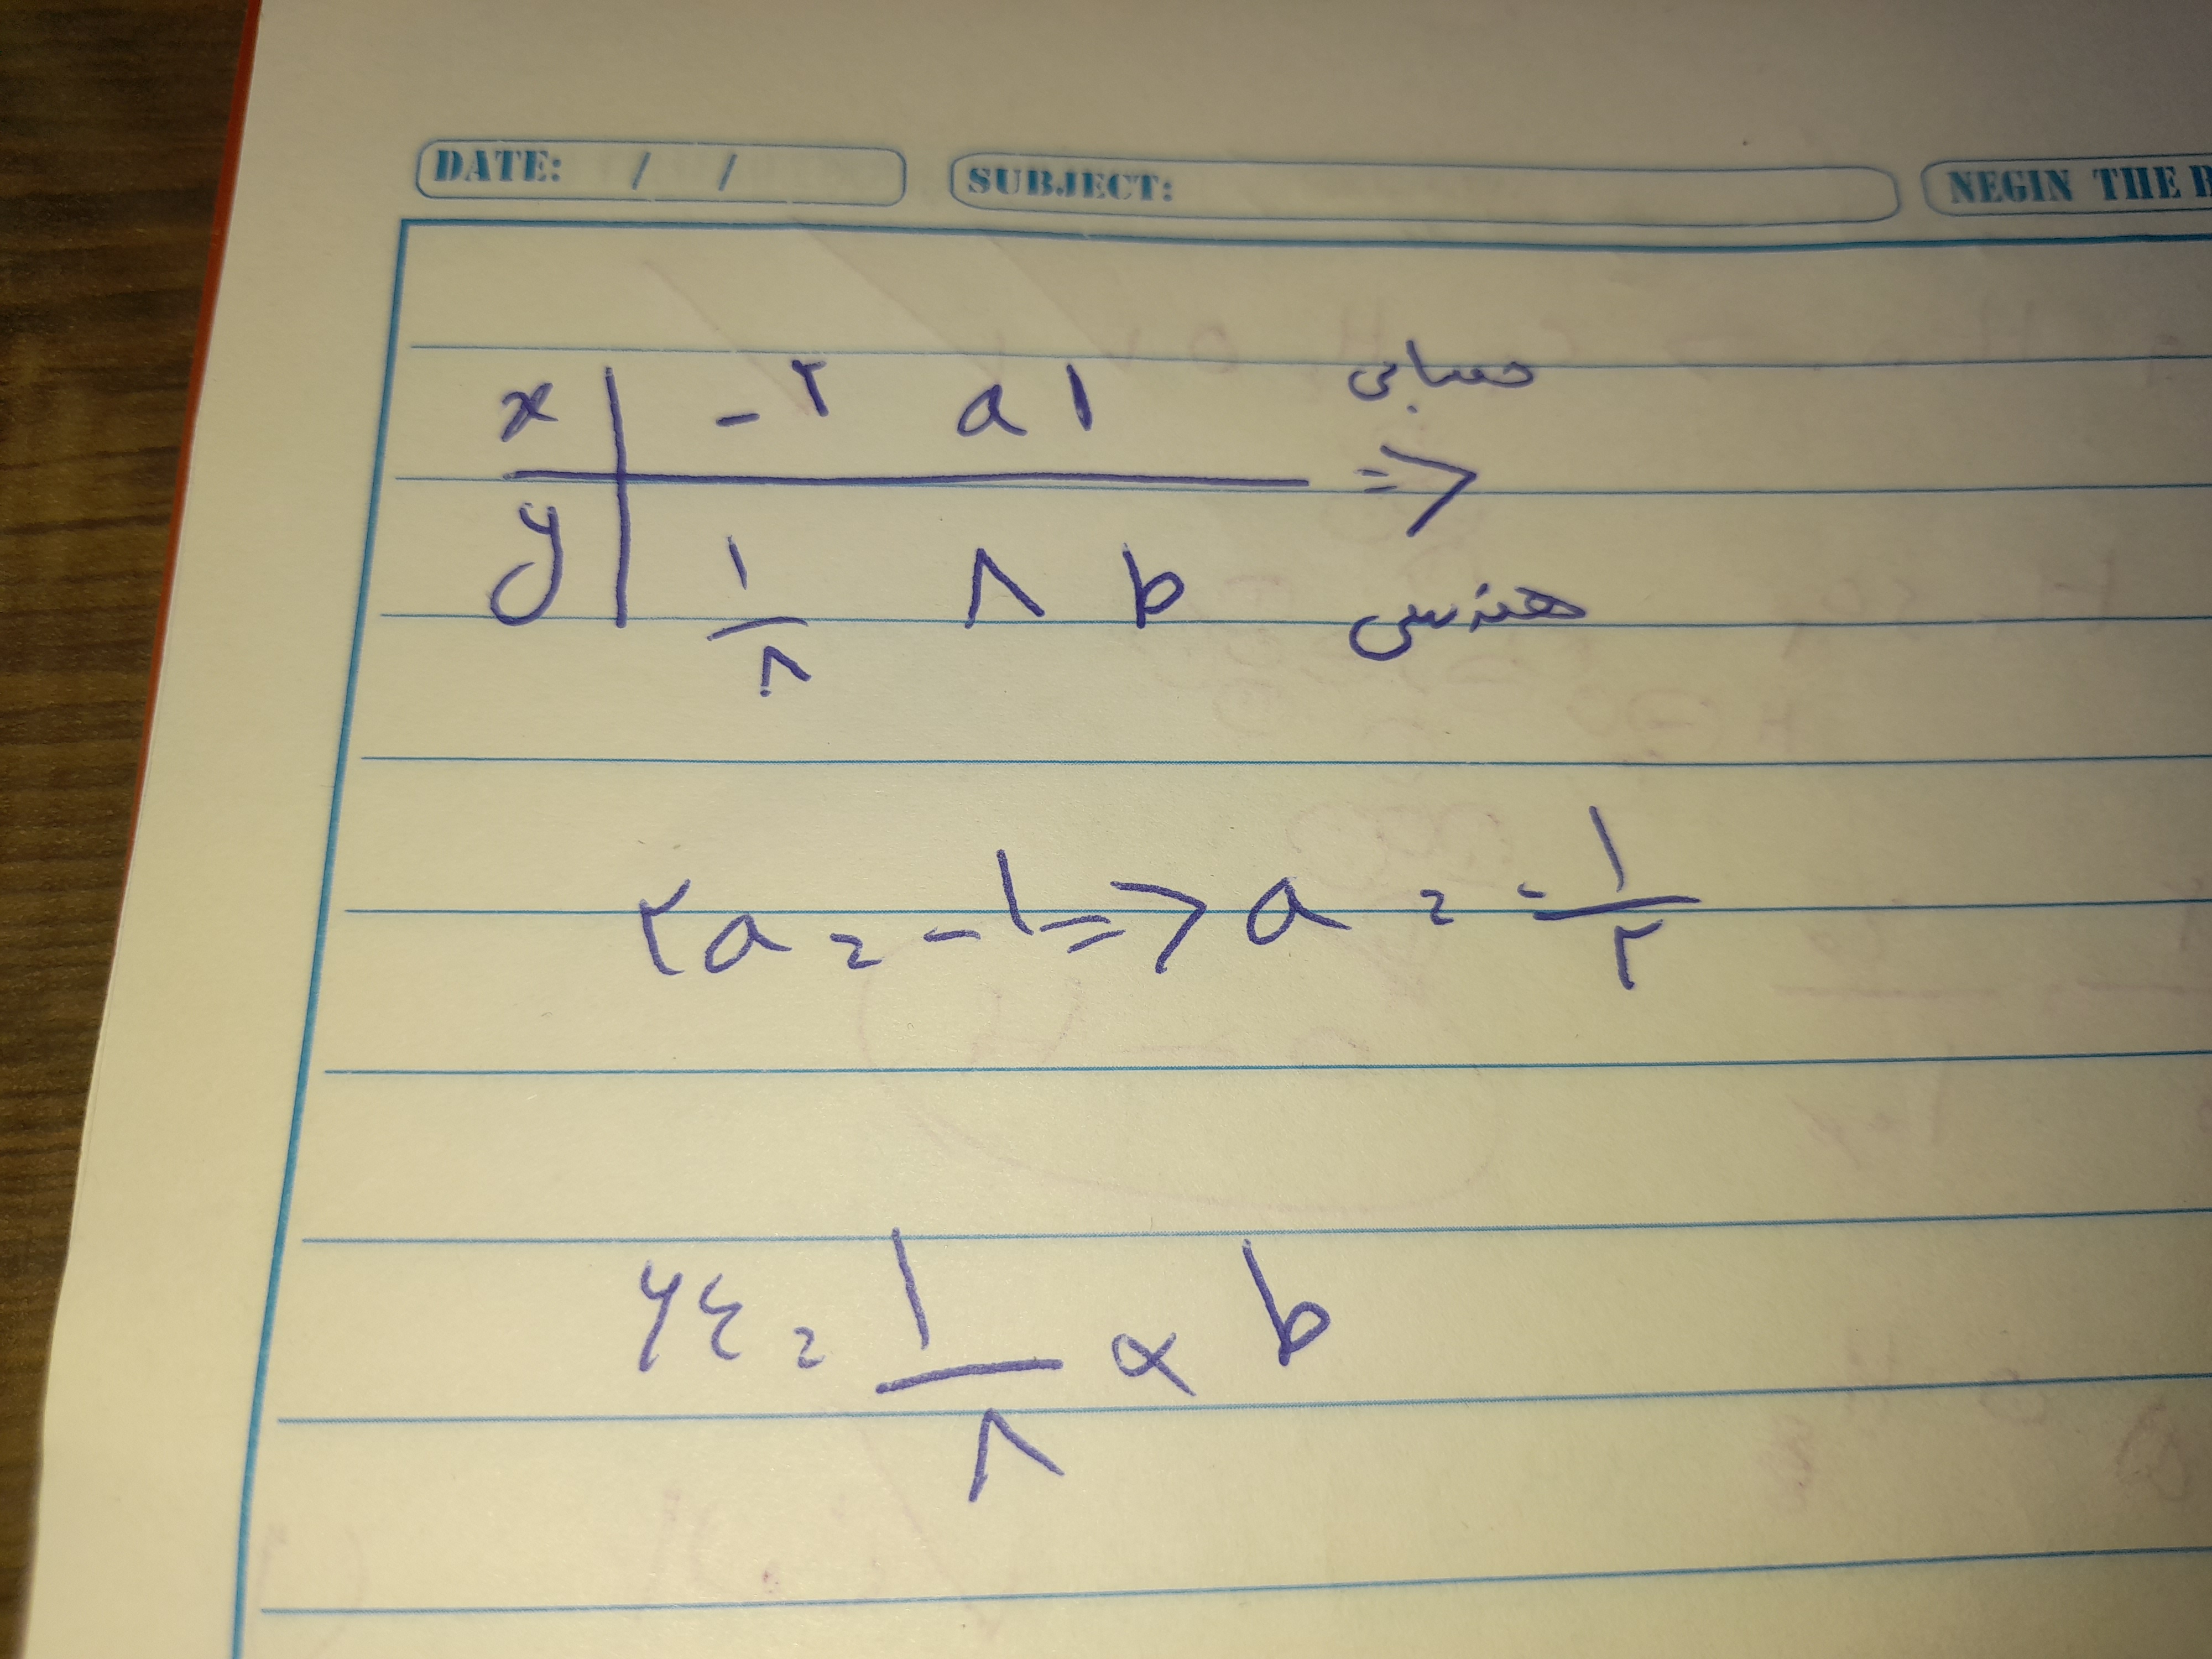 DATE: / / SUBJECT: NEGIN THE B
x -۲ a ۱ حسابی
=>
y ۱/۸ ۸ b هندسی
۲a = -۱ => a = -۱/۲
۶۴ = ۱/۸ × b